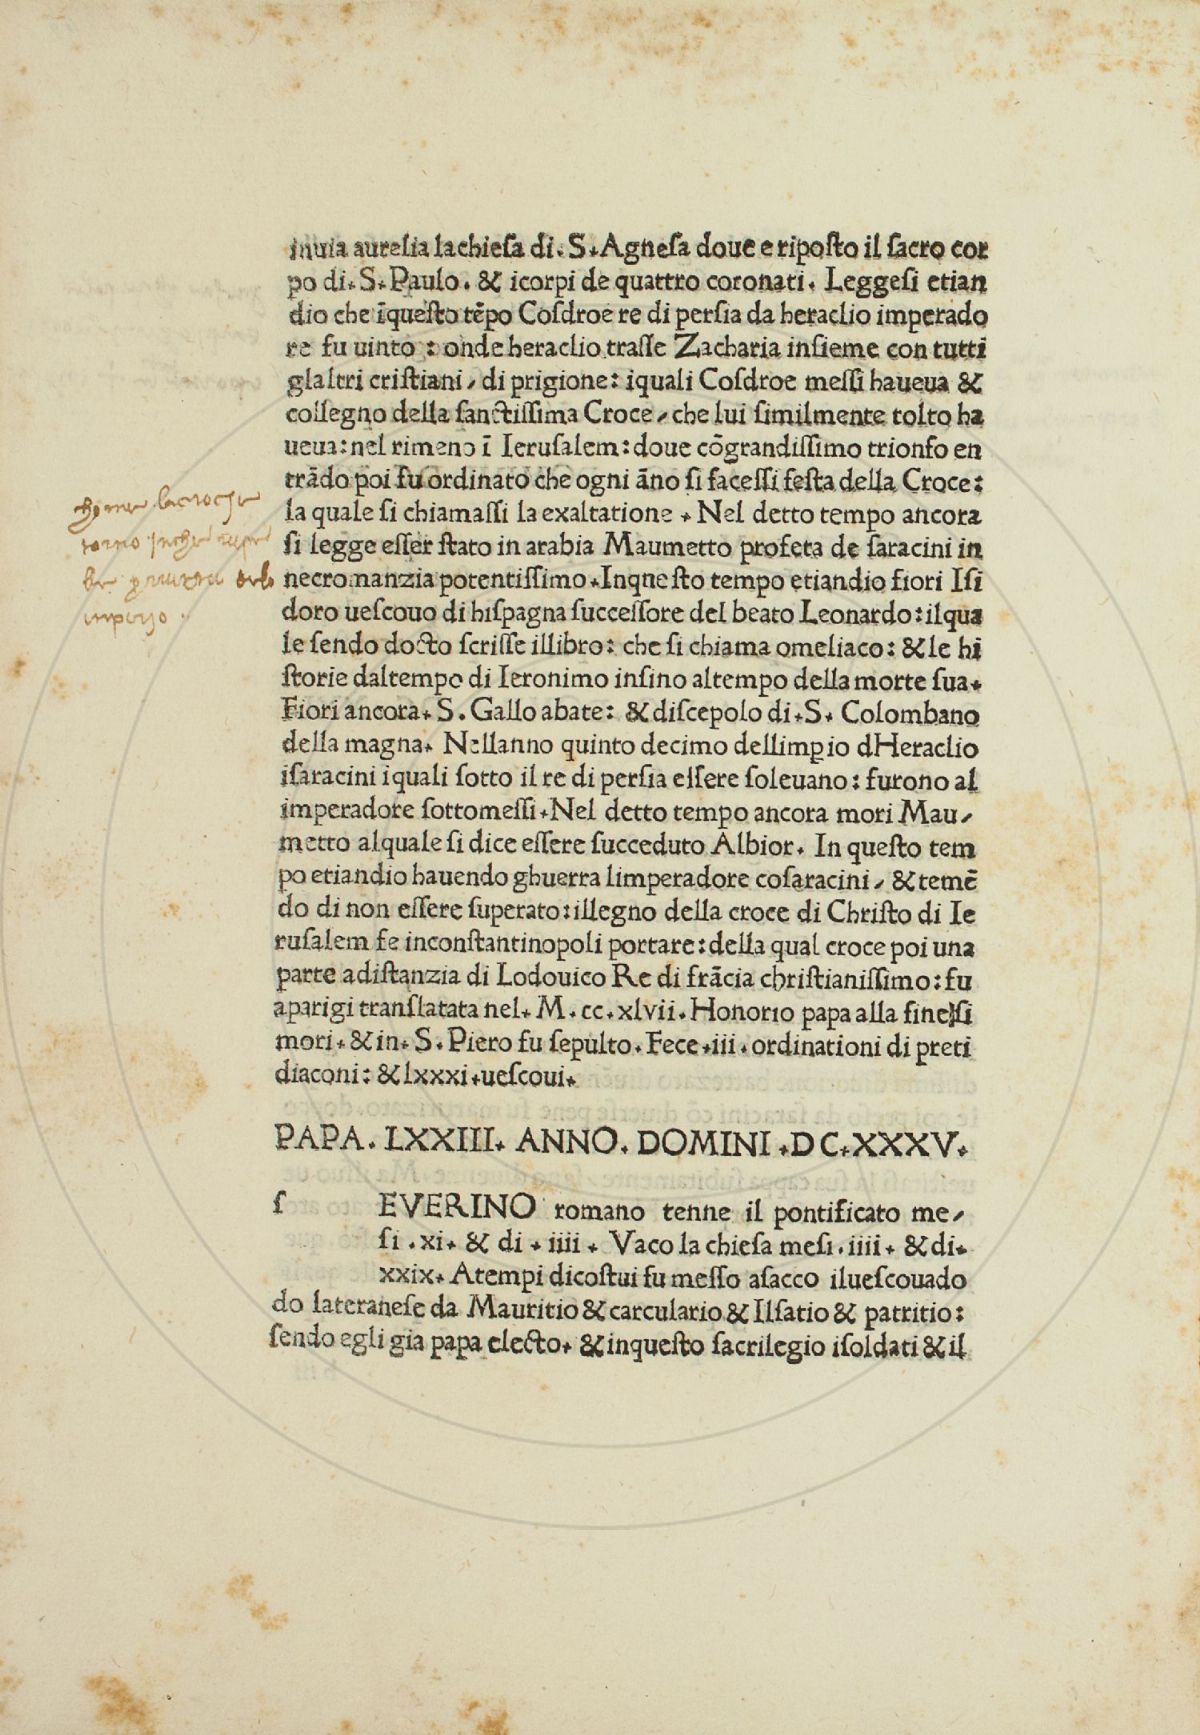 inuia aurelia lachiesa di. S. Agnesa doue e riposto il sacro cor
po di. S. Paulo. & icorpi de quattro coronati. Leggesi etian
dio che īquesto tēpo Cosdroe re di persia da heraclio imperado
re fu uinto : onde heraclio trasse Zacharia insieme con tutti
glaltri cristiani / di prigione: iquali Cosdroe messi haueua &
collegno della sanctissima Croce / che lui similmente tolto ha
ueua: nel rimeno ī Ierusalem: doue cōgrandissimo trionfo en
trādo poi fu ordinato che ogni āno si facessi festa della Croce:
la quale si chiamassi la exaltatione . Nel detto tempo ancora
si legge esser stato in arabia Maumetto profeta de saracini in
necromanzia potentissimo. Inqnesto tempo etiandio fiori Isi
doro uescouo di hispagna successore del beato Leonardo: ilqua
le sendo docto scrisse illibro: che si chiama omeliaco: & le hi
storie daltempo di Ieronimo insino altempo della morte sua.
Fiori ancora. S. Gallo abate: & discepolo di. S. Colombano
della magna. Nellanno quinto decimo dellimꝑio dHeraclio
isaracini iquali sotto il re di persia essere soleuano: furono al
imperadore sottomessi. Nel detto tempo ancora mori Mau/
metto alquale si dice essere succeduto Albior. In questo tem
po etiandio hauendo ghuerra limperadore cosaracini / & temē
do di non essere superato: illegno della croce di Christo di Ie
rusalem fe inconstantinopoli portare: della qual croce poi una
parte adistanzia di Lodouico Re di frācia christianissimo: fu
aparigi translatata nel. M. cc. xlvii. Honorio papa alla fine si
mori. & in. S. Piero fu sepulto. Fece .iii. ordinationi di preti
diaconi: & lxxxi. uescoui.
PAPA. LXXIII. ANNO. DOMINI .DC.XXXV.
s EVERINO romano tenne il pontificato me/
si .xi. & di . iiii . Vaco la chiesa mesi. iiii. & di.
xxix. Atempi dicostui fu messo asacco iluescouado
do lateranese da Mauritio & carculario & Ilsatio & patritio:
sendo egli gia papa electo. & inquesto sacrilegio isoldati & il